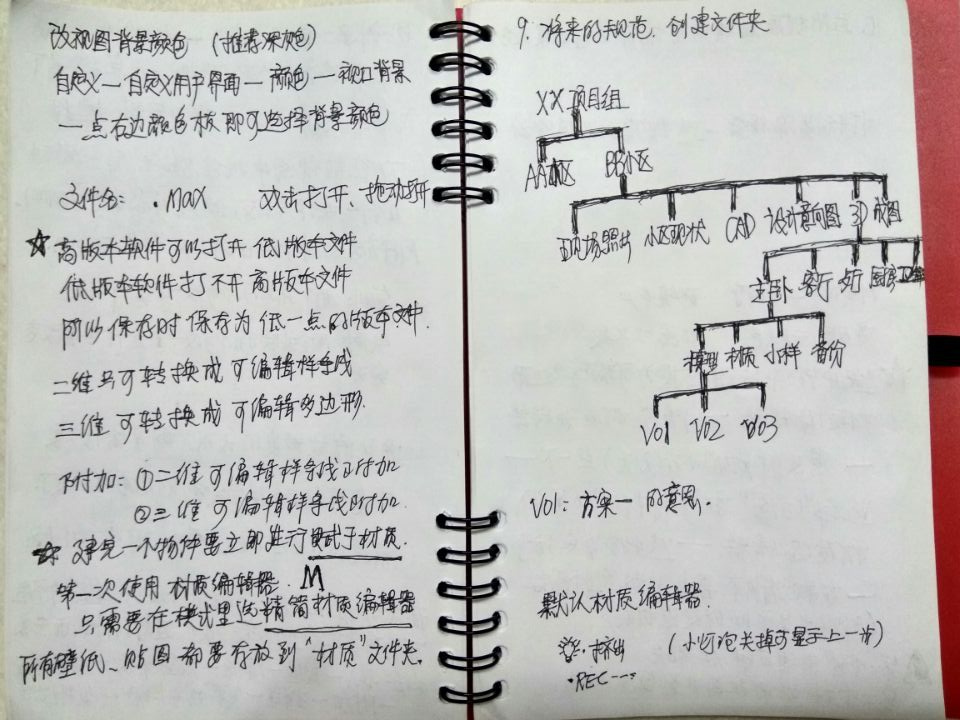 改视图背景颜色（推荐深灰色）
自定义—自定义用户界面—颜色—视口背景
—点右边颜色板即可选择背景颜色
文件名: .Max 双击打开、拖动打开
☆高版本软件可以打开低版本文件
低版本软件打不开高版本文件
所以保存时保存为低一点的版本文件.
二维 可转换成可编辑样条线
三维 可转换成可编辑多边形.
附加: ①二维可编辑样条线附加
②三维可编辑样条线附加.
☆建完一个物件要立即进行赋于材质.
第一次使用材质编辑器. M
只需要在模式里选精简材质编辑器
所有壁纸、贴图都要存放到“材质”文件夹.
9. 将来的规范, 创建文件夹
XX项目组
AA小区 BB小区
现场照片 小区现状 CAD 设计意向图 3D成图
主卧 客厅 厨房 卫生间
模型 材质 小样 备份
V01 V02 V03
V01: 方案一的意思.
默认材质编辑器.
挤出 (小灯泡关掉可显示上一步)
•REC---